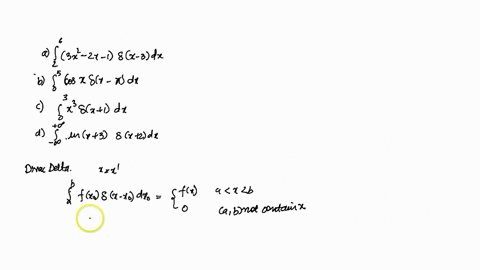 a) ∫₂⁶ (3x²-2x-1) δ(x-3) dx
b) ∫₀⁵ Cos x δ(x-π) dx
c) ∫₀³ x³ δ(x+1) dx
d) ∫₋∞^+∞ ln(x+3) δ(x+2) dx
Dirac Delta. x = x'
∫ₐᵇ f(x₀) δ(x-x₀) dx₀ = { f(x) a < x < b
0 (a,b) not contain x